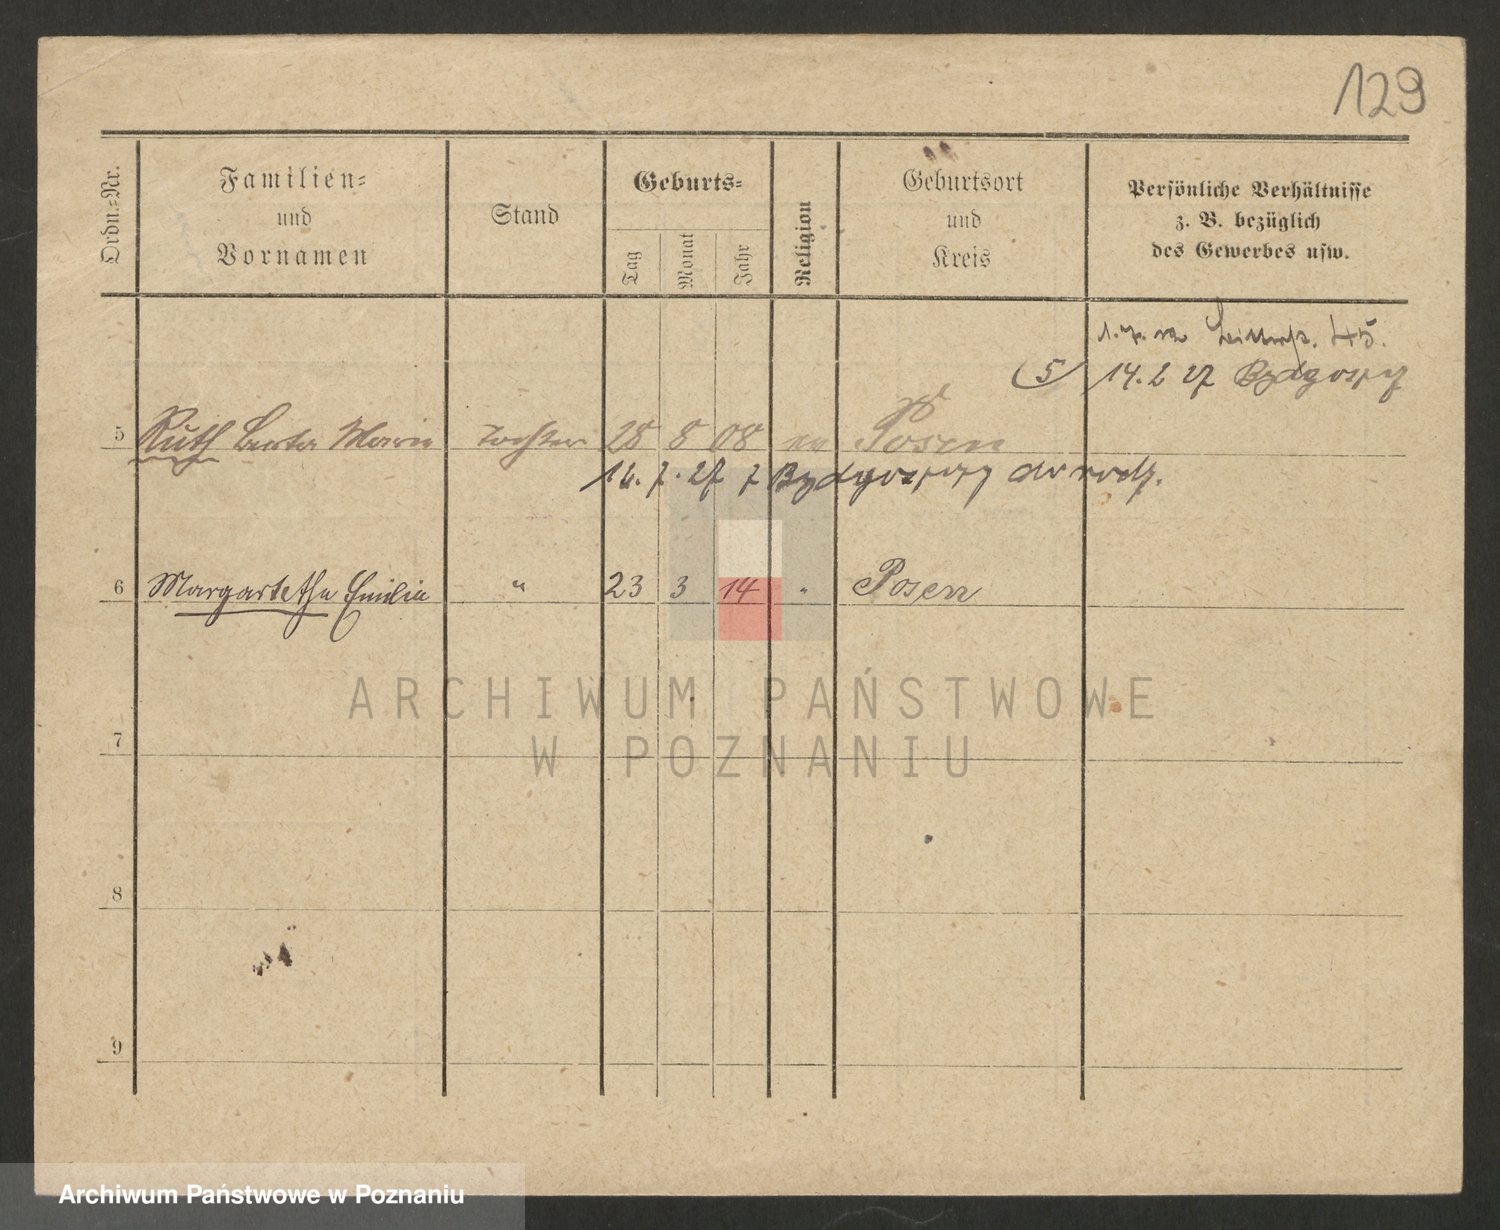 129
Ordn.=Nr.
Familien=
und
Vornamen
Stand
Geburts=
Tag
Monat
Jahr
Religion
Geburtsort
und
Kreis
Persönliche Verhältnisse
z. B. bezüglich
des Gewerbes usw.
45.
(5) 14. 2 27 Bydgoszcz
5 Ruth Berta Marie Tochter 28 8 08 ev Posen
7. 27 z Bydgoszczy do rodz.
6 Margarethe Emilie " 23 3 14 " Posen
ARCHIWUM PAŃSTWOWE
W POZNANIU
7
8
9
Archiwum Państwowe w Poznaniu